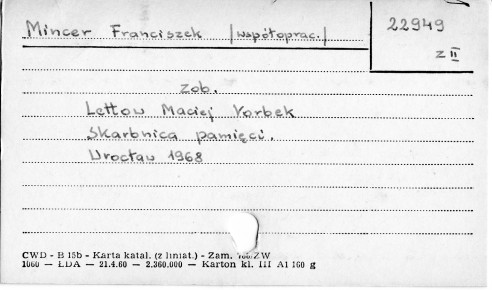 Mincer Franciszek /współoprac./
22949
Z II
zob.
Lettow Maciej Vorbek
Skarbnica pamięci.
Wrocław 1968
CWD - B 15b - Karta katal. (z liniat.) - Zam. ZW
1060 — ŁDA — 21.4.60 — 2.360.000 — Karton kl. III A1 160 g